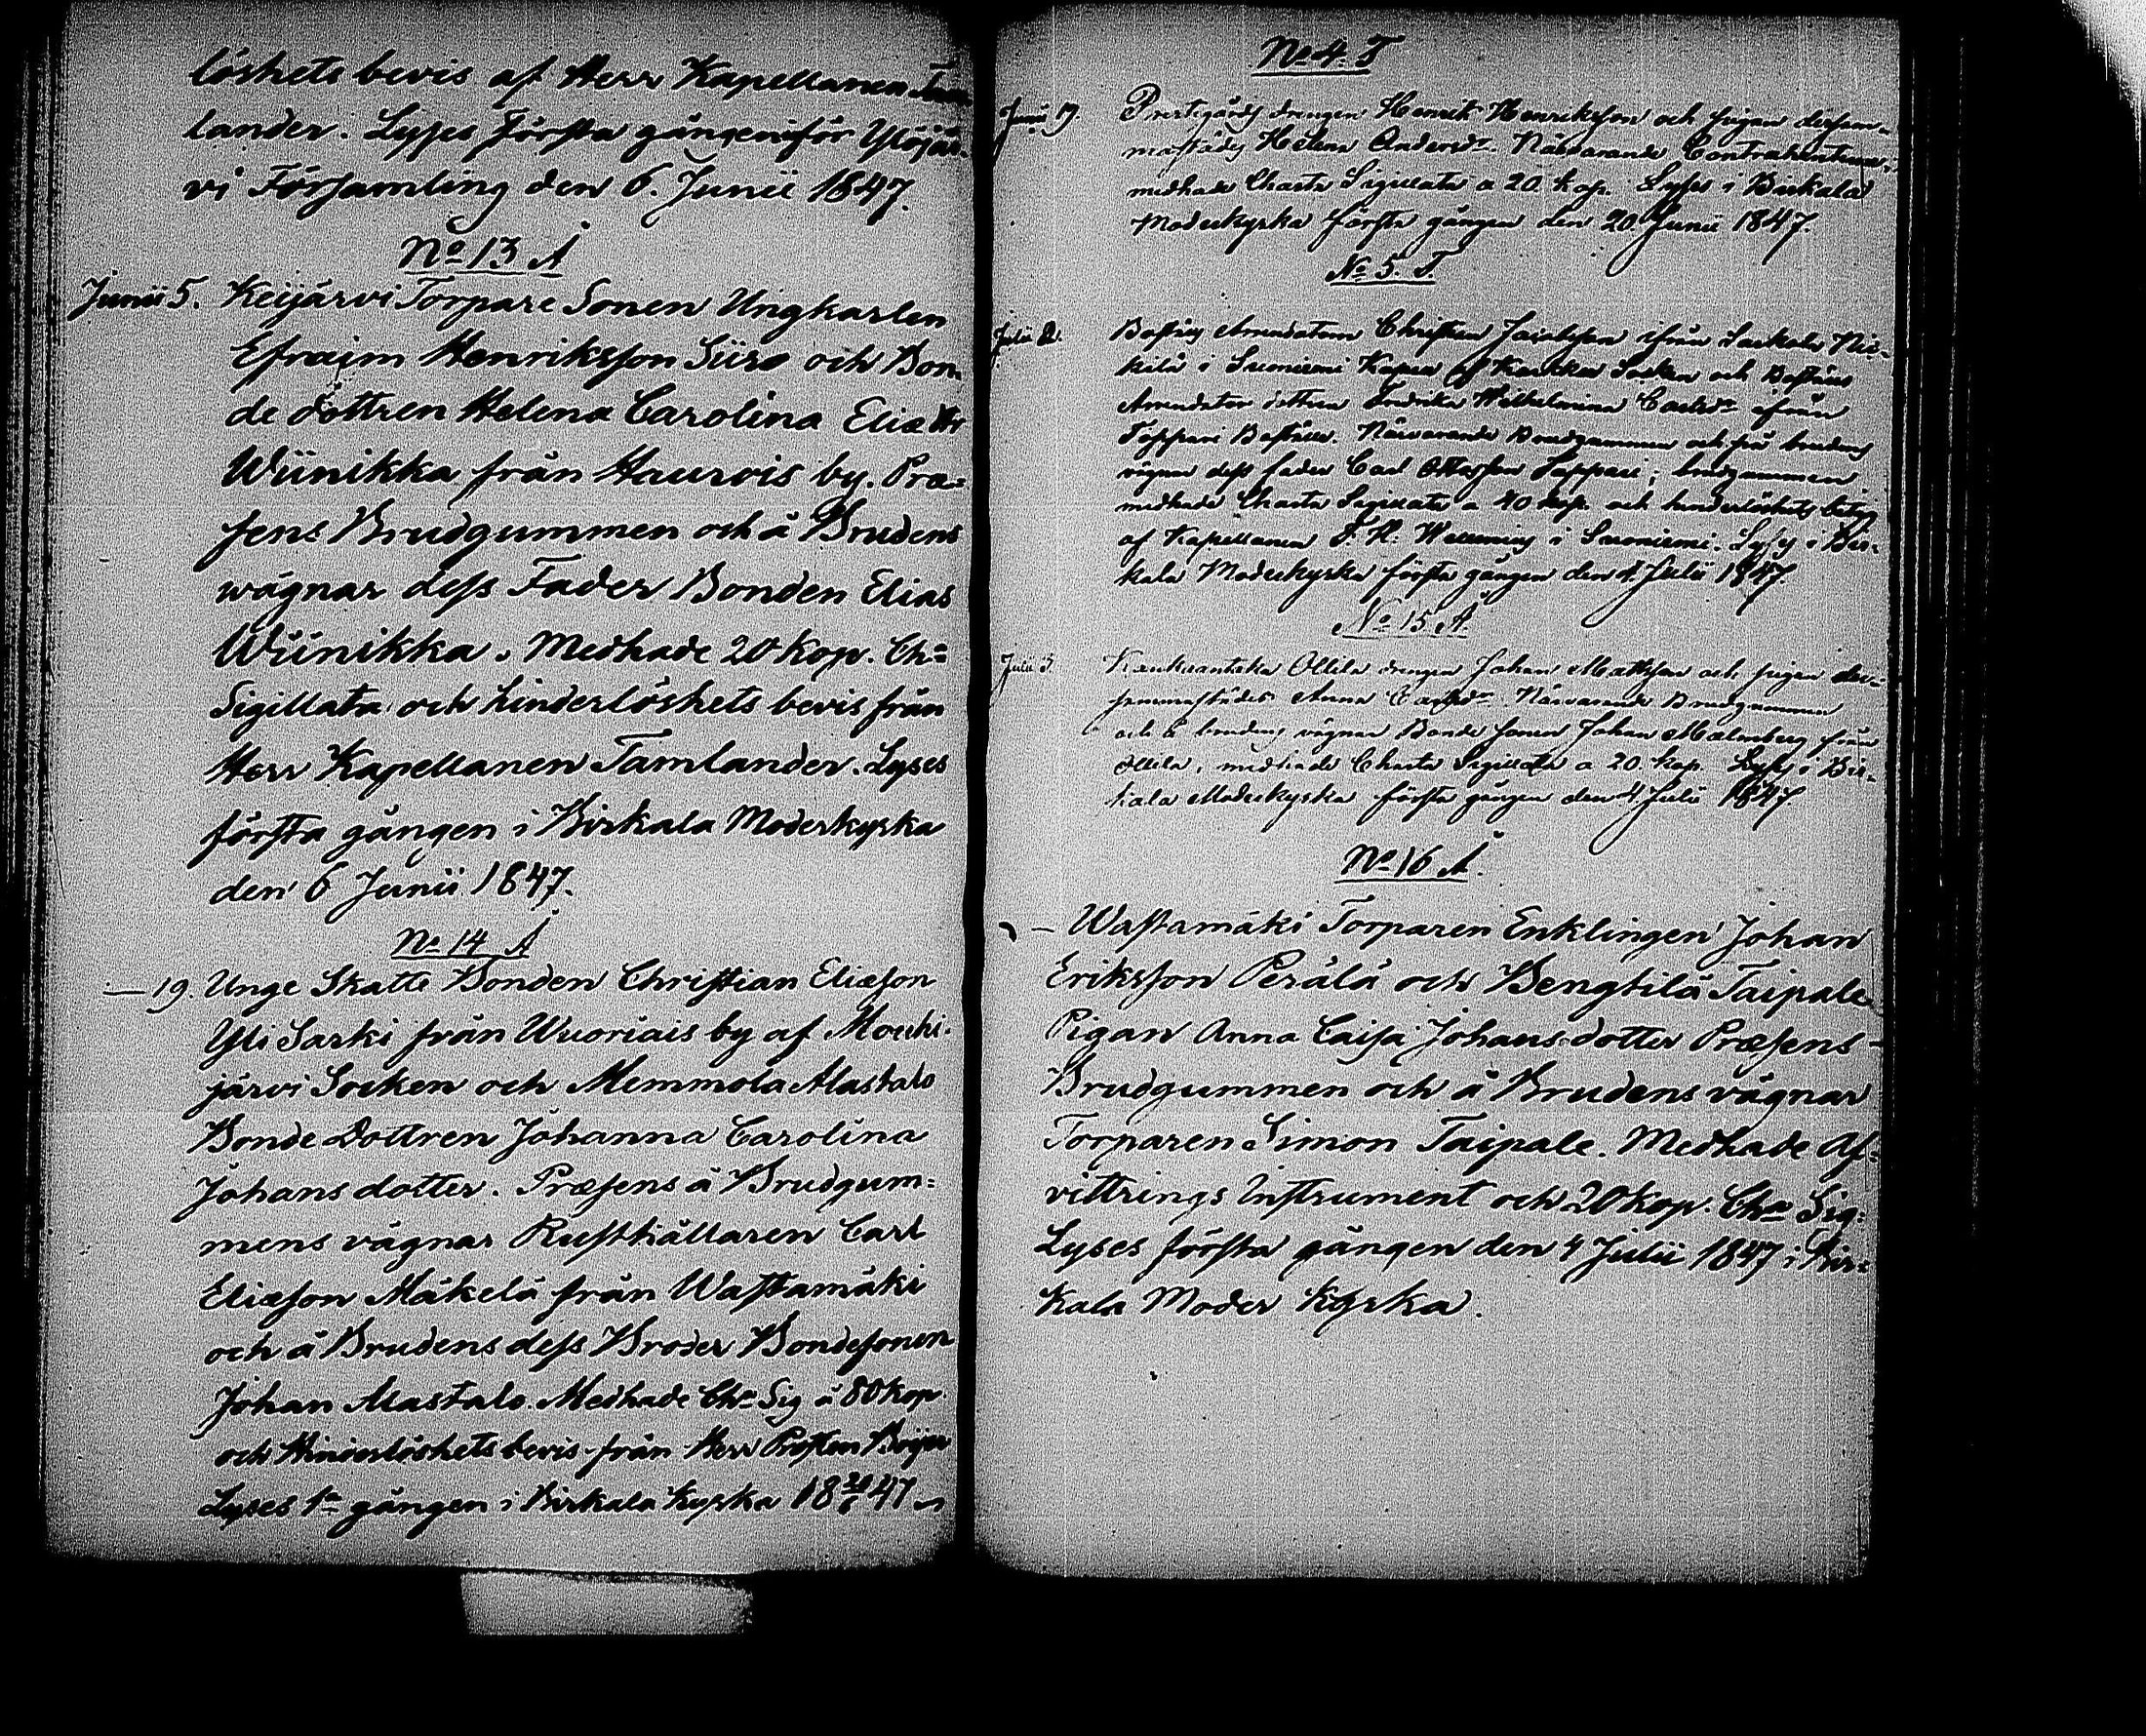 löshets bevis af Herr Kapellanen Tam
lander. Lyses Första gången för Ylöjär-
vi Församling den 6. Junii 1847.
No 13 Å
Junii 5. Keijärvi Torpare Sonen Ungkarlen
Efraim Henriksson Siiro och Bon-
de dottren Helena Carolina Eliædtr
Wiinikka från Haurois by. Præ-
sens Brudgummen och å Brudens
wägnar dess Fader Bonden Elias
Wiinikka. Medhade 20 Kop. Cha
Sigillata och hinderlöshets bevis från
Herr Kapellanen Tamlander. Lyses
första gången i Birkala Moderkyrka
den 6 Junii 1847.
No 14 Å
— 19. Unge Skatte Bonden Christian Eliæson
Yli Sarki från Wuoriais by af Mouhi-
järvi Socken och Memmola Alastalo
Bonde Dottren Johanna Carolina
Johans dotter. Præsens å Brudgum-
mens vägnar Rusthållaren Carl
Eliæson Mäkelä från Wastamäki
och å Brudens dess Broder Bondesonen
Johan Alastalo. Medhade Cha Sig à 80 kop
och Hinderlöshets bevis från Herr Prosten
Lyses 1a gången i Birkala Kyrka 18 20/6 47
No 4. T
Junii 19. Prestgårds drengen Henrik Henriksson och pigan dersam-
mastädes Helena Andersdr. Närvarande Contrahenterne,
medhade Charta Sigillata a 20 kop. Lyses i Birkala
Moderkyrka första gången den 20 Junii 1847.
No 5. T.
Julii 2. Christian Jacobsson ifrån
i Suoniemi Kapell af Karkku Socken och
dottren Fredrika Wilhelmina Carlsdr ifrån
Toppari Närvarande Brudgummen och på brudens
vägnar dess fader Carl Ottosson Toppari; brudgummen
medhade Charta Sigillata a 40 kop. och hinderlöshets betyg
af Kapellanen i Suoniemi. Lyses i Bir-
kala Moderkyrka första gången den 4 Julii 1847.
No 15 Å.
Julii 3. Ollila drengen Johan Mattsson och pigan der-
sammastädes Anna Närvarande Brudgummen
och å brudens vägnar Bonde sonen Johan Malmberg från
Ollila, medhade Charta Sigillata a 20 kop. Lyses i Bir-
kala Moderkyrka första gången den 4 Julii 1847
No 16 Å.
— Wastamäki Torparen Enklingen Johan
Eriksson Perälä och Bengtilä Taipale
Pigan Anna Caisa Johans dotter Præsens
Brudgummen och å Brudens vägnar
Torparen Simon Taipale. Medhade Af-
vittrings Instrument och 20 kop. Cha Sig.
Lyses första gången den 4 Julii 1847 i Bir-
kala Moder Kyrka.